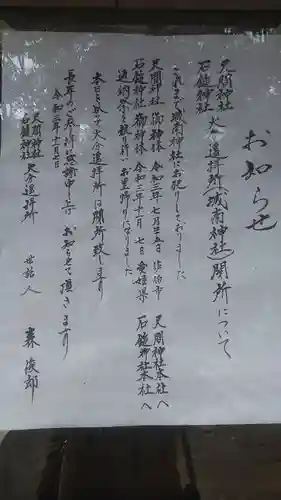 お知らせ
天間神社
石鎚神社 大分遥拝所(城南神社)閉所について
これまで城南神社にお祀りしておりました
天間神社 御神体 令和三年七月 五日 天間神社本社へ
石鎚神社 御神体 令和三年十月 七日 愛媛県 石鎚神社本社へ
返納祭を執り行いお里帰りになりました
本日を以て大分遥拝所は閉所致します
長年のご参拝感謝申し上げ お知らせて頂きます
令和三年十月七日
天間神社
石鎚神社 大分遥拝所
世話人 森 俊郎